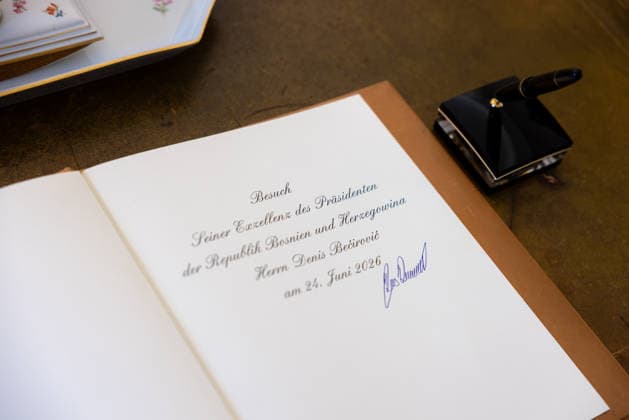 Besuch
Seiner Exzellenz des Präsidenten
der Republik Bosnien und Herzegowina
Herrn Denis Bećirović
am 24. Juni 2026